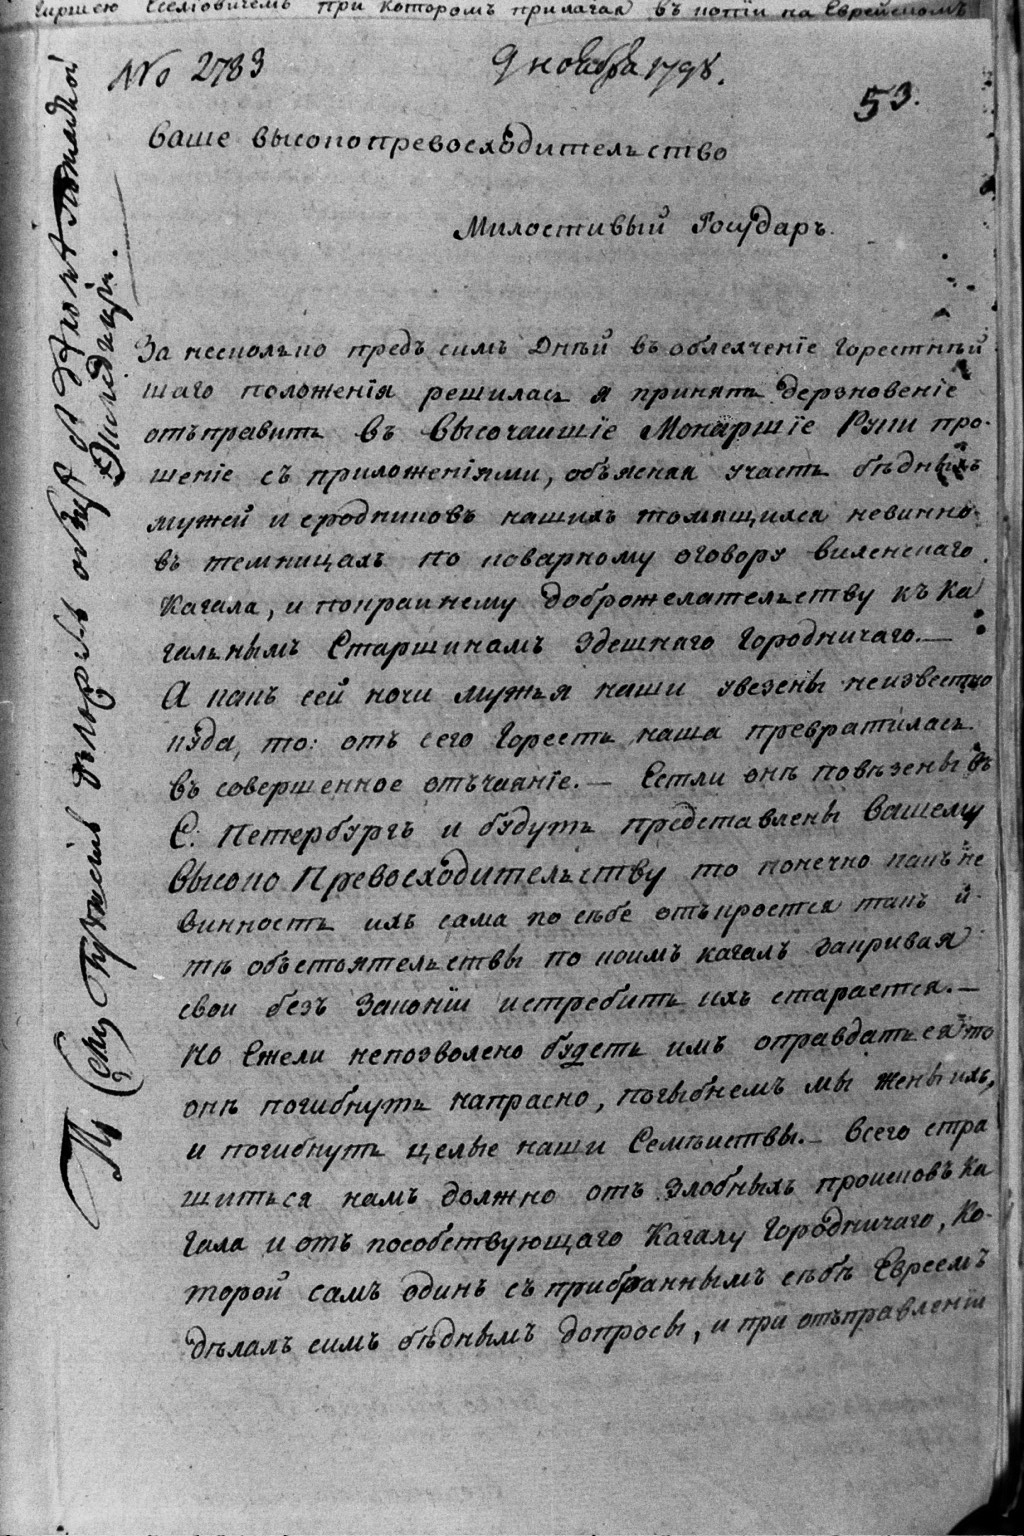 Гиршею Еселiовичемъ при которомъ прилагая въ копiи на Еврейскомъ
No 2783
9 ноября 1798.
53.
Ваше высокопревосходительство
Милостивый Государь.
За несколько предъ симъ дней въ облехченiе горестнѣй
шаго положенiя решилась я принять дерзновенiе
отъправить въ Высочаишiе Монаршiе Руки про-
шенiе съ приложенiями, объясняя участь бѣдныхъ
мужей и сродниковъ нашихъ томящихся невинно
въ темницахъ по коварному оговору виленскаго
Кагала, и покраинему доброжелательству къ Ка
гальнымъ Старшинамъ здешняго Городничаго.—
А какъ сей ночи мужья наши увезены неизвестно
куда, то: отъ сего Горесть наша превратилась
въ совершенное отъчаянiе.— Естли онѣ повѣзены въ
С: Петербургъ и будутъ представлены Вашему
Высоко Превосходительству то конечно какъ не
винность ихъ сама по себе отъкроется такъ и
тѣ обѣстоятельствы по коимъ кагалъ закривая
свои безъ Законiи истребить ихъ старается.—
Но Ежели непозволено будетъ имъ оправдаться то
онѣ погибнутъ напрасно, погыбнемъ мы жены ихъ,
и погибнутъ целые наши Семѣиствы.— всего стра
шиться намъ должно отъ злобныхъ происковъ Ка
гала и отъ пособствующаго Кагалу Городничаго, Ко-
торой самъ одинъ съ прибраннымъ сѣбѣ Евреемъ
дѣлалъ симъ бѣднымъ допросы, и при отъправленiи